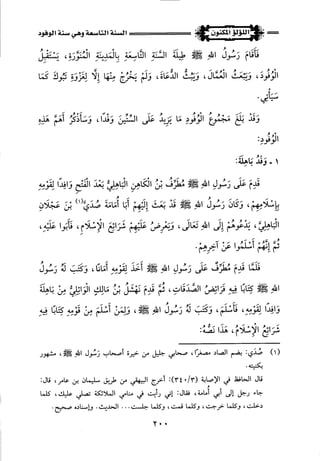 اللؤلؤ المكنون
السنة التاسعة وهي سنة الوفود
فأقام رسول الله ﷺ السنة التاسعة بالمدينة المنورة، يستقبل
الوفود، ويبعث العمال، ويبعث الدعاة، ولم يخرج منها إلا لغزوة تبوك كما
سيأتي.
وقد بلغ مجموع الوفود ما يزيد على الستين وفدًا، وسأذكر أهم هذه
الوفود:
١ - وفد باهلة:
قدم على رسول الله ﷺ مطرف بن الكاهن الباهلي بعد الفتح وافدًا لقومه
بإسلامهم، وكان رسول الله ﷺ قد بعث إليهم أبا أمامة صُدي (١) بن عجلان
الباهلي، يدعوهم إلى الله تعالى، ويعرض عليهم شرائع الإسلام، فأبوا عليه،
ثم إنهم أسلموا عن آخرهم.
فلما قدم مطرف على رسول الله ﷺ أخذ لقومه أمانًا، وكتب له رسول
الله ﷺ كتابًا فيه فرائض الصدقات، ثم قدم نهشل بن مالك الوائلي من باهلة
وافدًا لقومه، فأسلم، وكتب له رسول الله ﷺ، ولمن أسلم من قومه كتابًا فيه
شرائع الإسلام، هذا نصه:
(١) صُدي: بضم الصاد مصغرًا، صحابي جليل من خيرة أصحاب رسول الله ﷺ، مشهور
بكنيته.
قال الحافظ في الإصابة (٣/ ٣٤٠): أخرج الطبراني من طريق سليمان بن عامر، قال:
جاء رجل إلى أبي أمامة، فقال: إني رأيت في منامي الملائكة تصلي عليك، كلما
دخلت، وكلما خرجت، وكلما قمت، وكلما جلست... الحديث. وإسناده صحيح.
٢٠٠